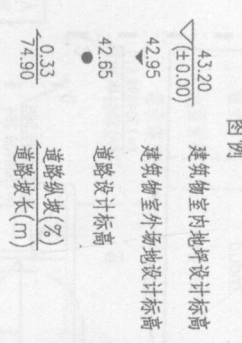 图例
43.20
(±0.00)
建筑物室内地坪设计标高
42.95
建筑物室外场地设计标高
42.65
道路设计标高
0.33
74.90
道路纵坡(%)
道路坡长(m)